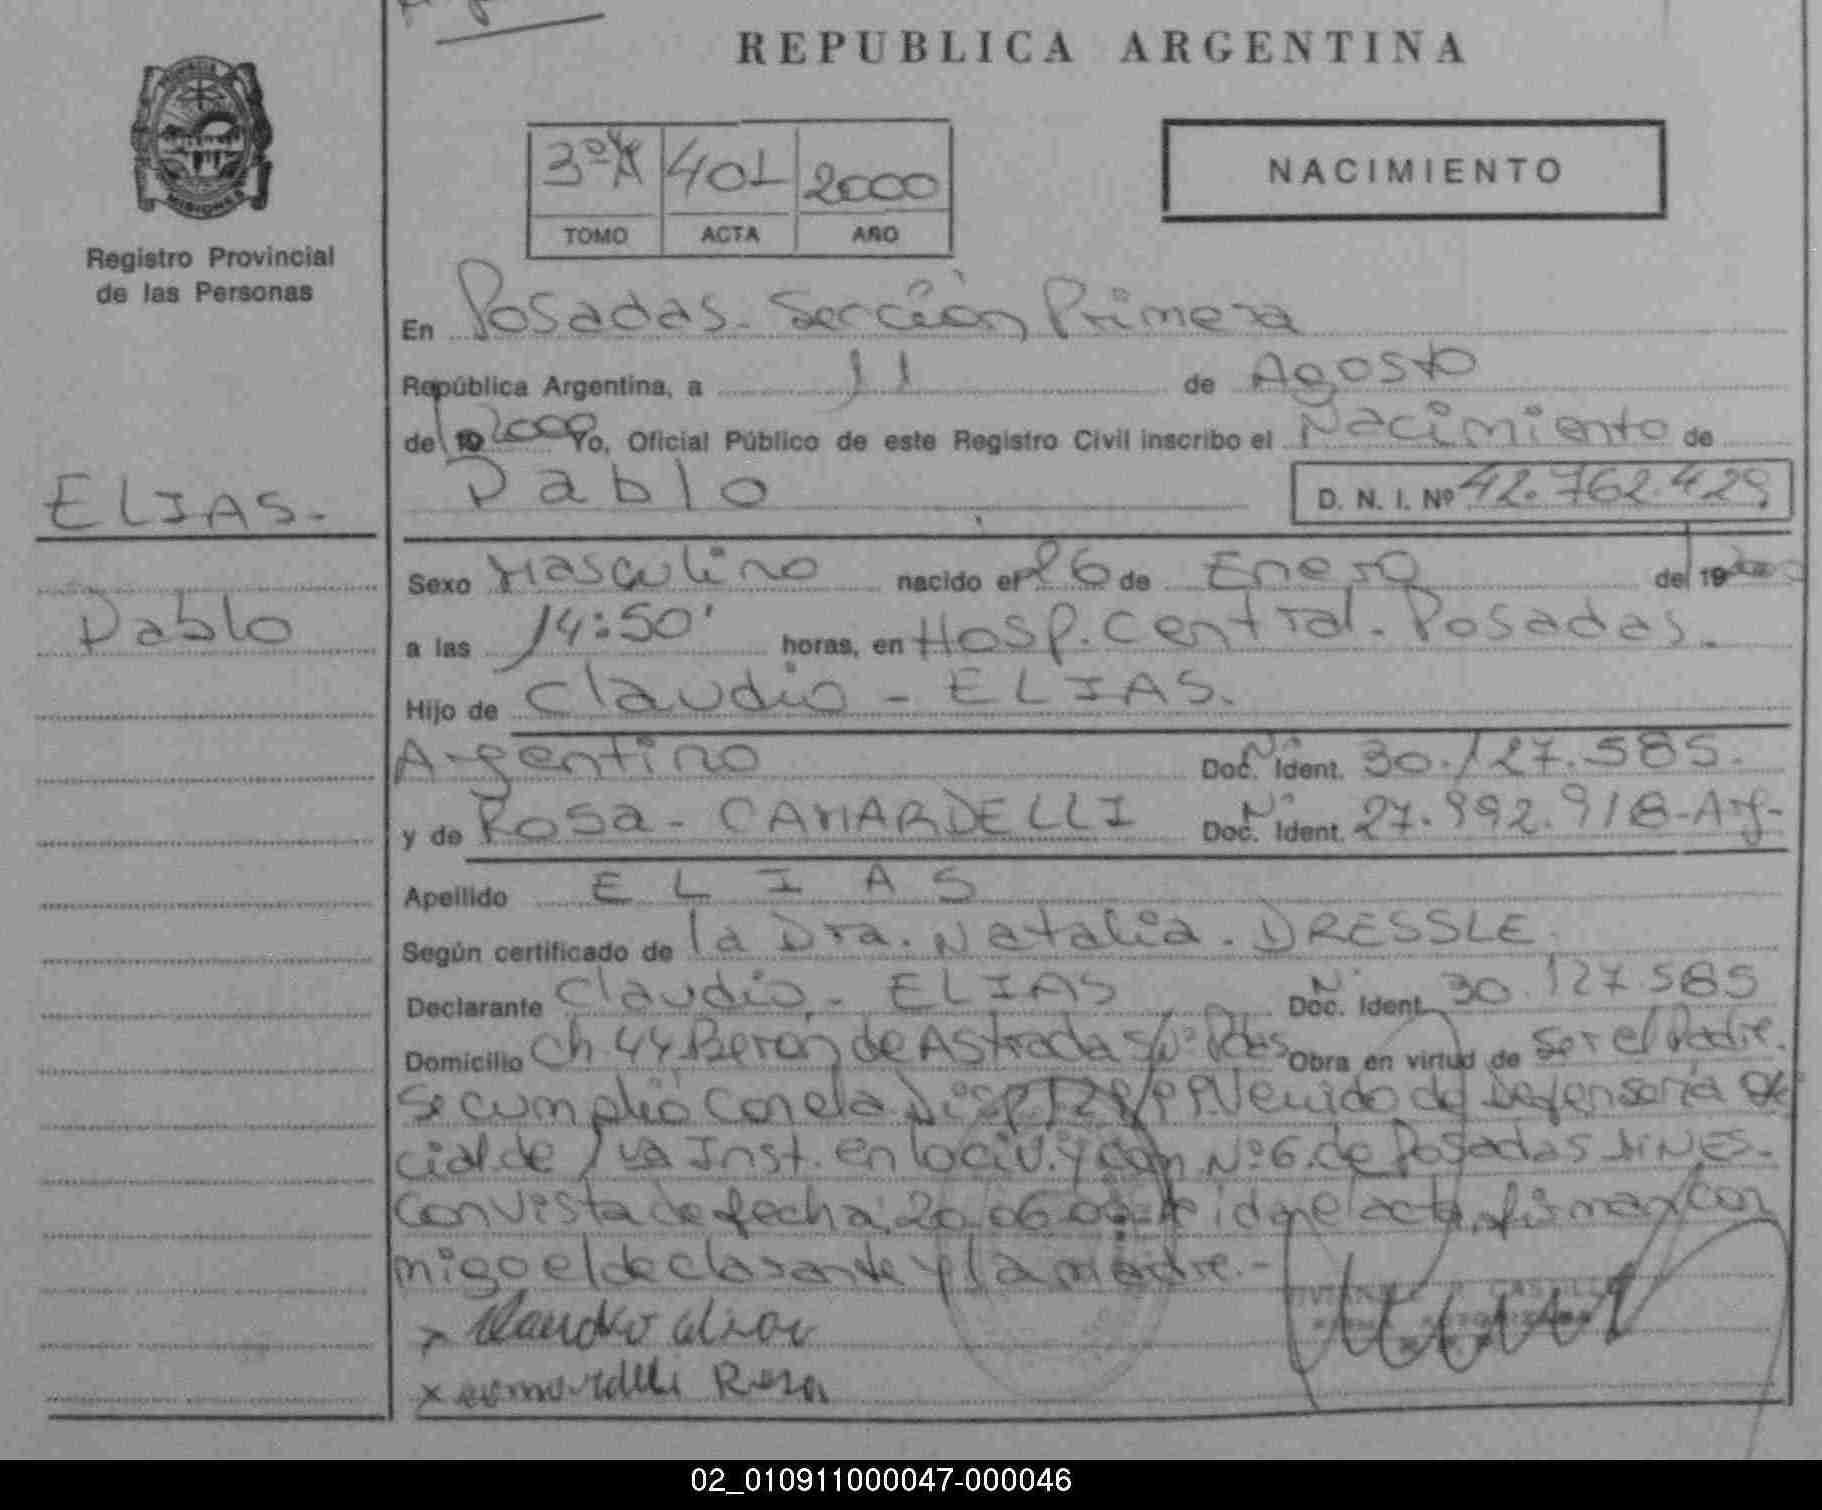 REPUBLICA ARGENTINA
PROVINCIA
MISIONES
Registro Provincial
de las Personas
3º 401 2000
TOMO ACTA AÑO
NACIMIENTO
En Posadas. Sección Primera
República Argentina, a 11 de Agosto
de 19 2000 Yo, Oficial Público de este Registro Civil inscribo el Nacimiento de
Pablo D. N. I. Nº 42.762.429
ELIAS.
Pablo
Sexo Masculino nacido el 26 de Enero de 19 2000
a las 14:50' horas, en Hosp. Central. Posadas.
Hijo de Claudio - ELIAS.
Argentino Doc. Ident. Nº 30.127.585.
y de Rosa - CAMARDELLI Doc. Ident. Nº 27.992.918-Arg-
Apellido ELIAS
Según certificado de la Dra. Natalia. DRESSLE.
Declarante Claudio. ELIAS Doc. Ident. Nº 30.127.585
Domicilio Ch. 44 Berón de Astrada s/nº Pdas Obra en virtud de ser el Padre.
Se cumplió con la Disp. Venido de Defensoría Ofi
cial de 1ra Inst. en lo Civ. y Com Nº 6. de Posadas MNES.
Con vista de fecha, 20.06.00 leida el acta, firman con
migo el declarante y la madre.-
x Claudio Elias
x camardelli Rosa
02_010911000047-000046